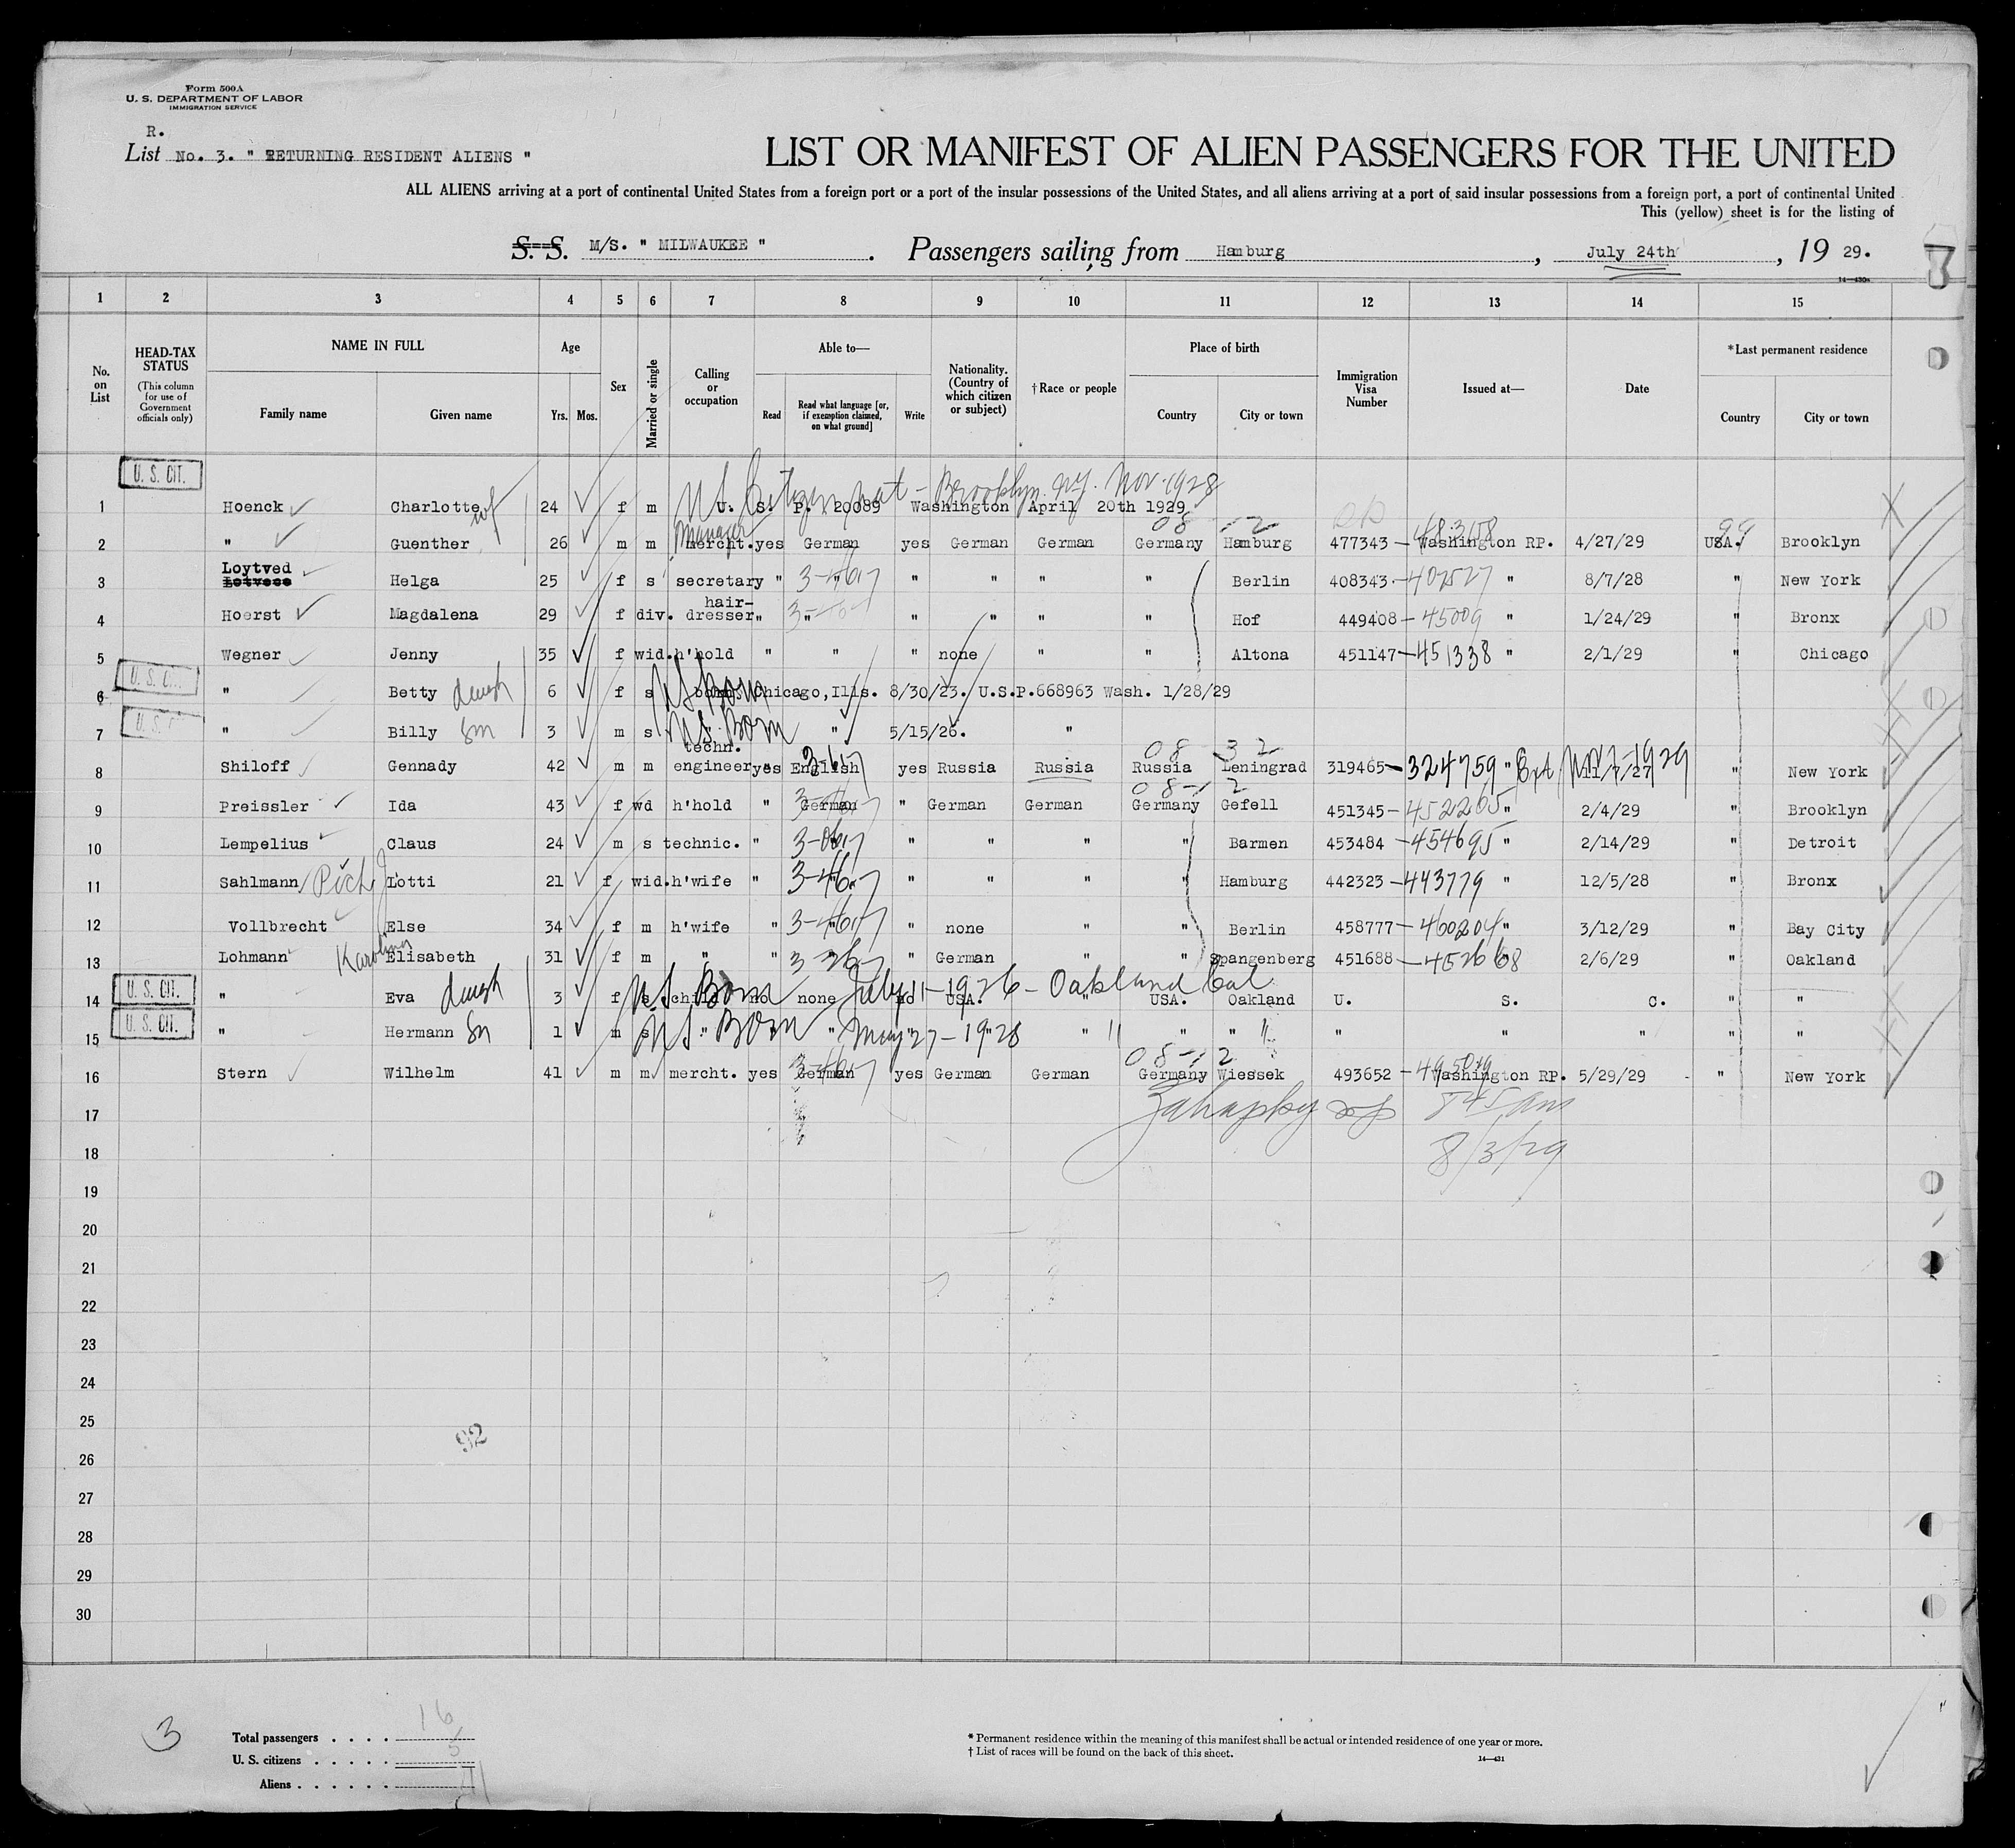 Form 500A
U. S. DEPARTMENT OF LABOR
IMMIGRATION SERVICE
R.
List No. 3. " RETURNING RESIDENT ALIENS "
LIST OR MANIFEST OF ALIEN PASSENGERS FOR THE UNITED
ALL ALIENS arriving at a port of continental United States from a foreign port or a port of the insular possessions of the United States, and all aliens arriving at a port of said insular possessions from a foreign port, a port of continental United
This (yellow) sheet is for the listing of
S. S. M/S. " MILWAUKEE " . Passengers sailing from Hamburg , July 24th , 19 29.
1 2 3 4 5 6 7 8 9 10 11 12 13 14 15
No. on List
HEAD-TAX STATUS
(This column for use of Government officials only)
NAME IN FULL
Family name Given name
Age
Yrs. Mos.
Sex
Married or single
Calling or occupation
Able to—
Read
Read what language [or, if exemption claimed, on what ground]
Write
Nationality. (Country of which citizen or subject)
† Race or people
Place of birth
Country City or town
Immigration Visa Number
Issued at—
Date
*Last permanent residence
Country City or town
U. S. CIT.
US Citizen nat - Brooklyn N.Y. Nov. 1928
1 Hoenck Charlotte wf 24 f m U. S. P. 20089 Washington April 20th 1929
Manager 08 - 2 483158 99
2 " Guenther 26 m m mercht. yes German yes German German Germany Hamburg 477343 — Washington RP. 4/27/29 USA. Brooklyn
Loytved
3 Helga 25 f s secretary " " " " " " Berlin 408343 - 407527 " 8/7/28 " New York
hair-
4 Hoerst Magdalena 29 f div. dresser " " " " " " Hof 449408 - 45009 " 1/24/29 " Bronx
5 Wegner Jenny 35 f wid. h'hold " " " none " " Altona 451147 - 451338 " 2/1/29 " Chicago
U. S. CIT.
6 " Betty daugh 6 f s born Chicago, Ills. 8/30/23. U.S.P.668963 Wash. 1/28/29
US Born
7 " Billy sn 3 m s US Born " 5/15/26. "
techn. 08 32
8 Shiloff Gennady 42 m m engineer yes English yes Russia Russia Russia Leningrad 319465 - 324759 " Ext 11/7/27 " New York
08-12
9 Preissler Ida 43 f wd h'hold " German " German German Germany Gefell 451345 - 452205 " 2/4/29 " Brooklyn
10 Lempelius Claus 24 m s technic. " " " " " " Barmen 453484 - 454695 " 2/14/29 " Detroit
11 Sahlmann Lotti 21 f wid. h'wife " " " " " " Hamburg 442323 - 443779 " 12/5/28 " Bronx
12 Vollbrecht Else 34 f m h'wife " " " none " " Berlin 458777 - 460204 " 3/12/29 " Bay City
Karolina
13 Lohmann Elisabeth 31 f m " " " " German " " Spangenberg 451688 - 452668 " 2/6/29 " Oakland
U. S. CIT.
US Born July 11-1926 - Oakland Cal
14 " Eva daugh 3 f s child no none no USA. USA. Oakland U. S. C. " "
U. S. CIT.
15 " Hermann sn 1 m s " US Born May 27-1928 " " " " " " " "
08-12
16 Stern Wilhelm 41 m m mercht. yes German yes German German Germany Wiessek 493652 - Washington RP. 5/29/29 " New York
17
845 am
18
8/3/29
19
20
21
22
23
24
25
92
26
27
28
29
30
3
Total passengers . . . . 16
U. S. citizens . . . . . 5
Aliens . . . . . . 11
* Permanent residence within the meaning of this manifest shall be actual or intended residence of one year or more.
† List of races will be found on the back of this sheet.
14—431